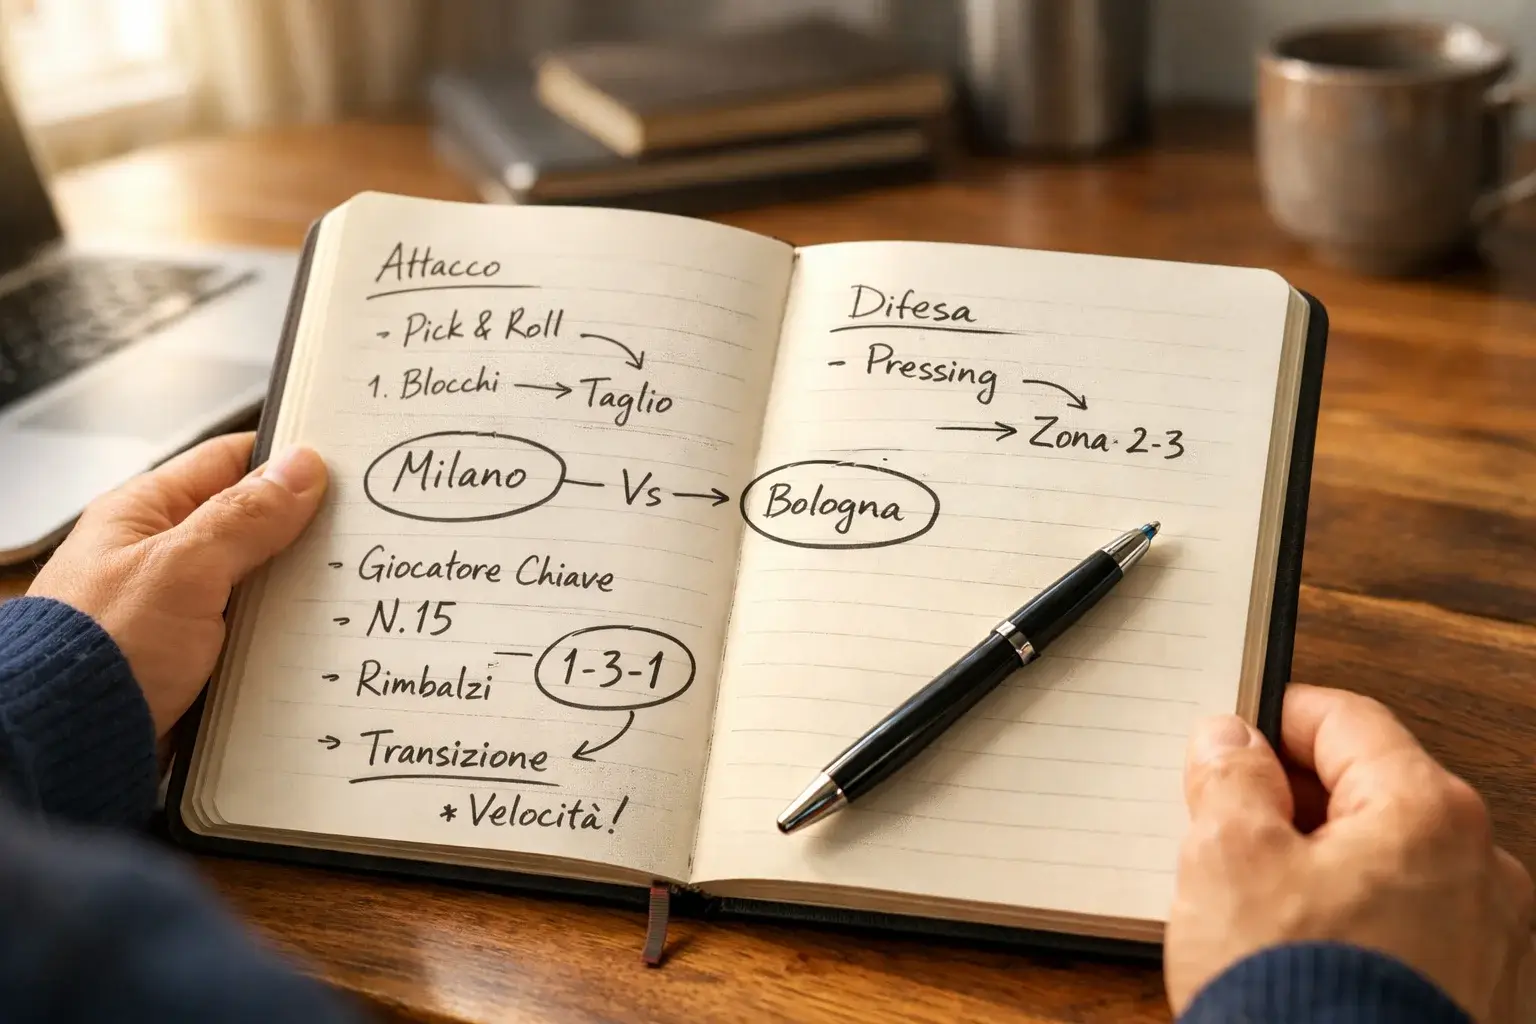 Attacco
- Pick & Roll
1. Blocchi → Taglio
Milano — Vs → Bologna
- Giocatore Chiave
- N.15
- Rimbalzi — 1-3-1
→ Transizione
* Velocità!
Difesa
- Pressing
→ Zona 2-3